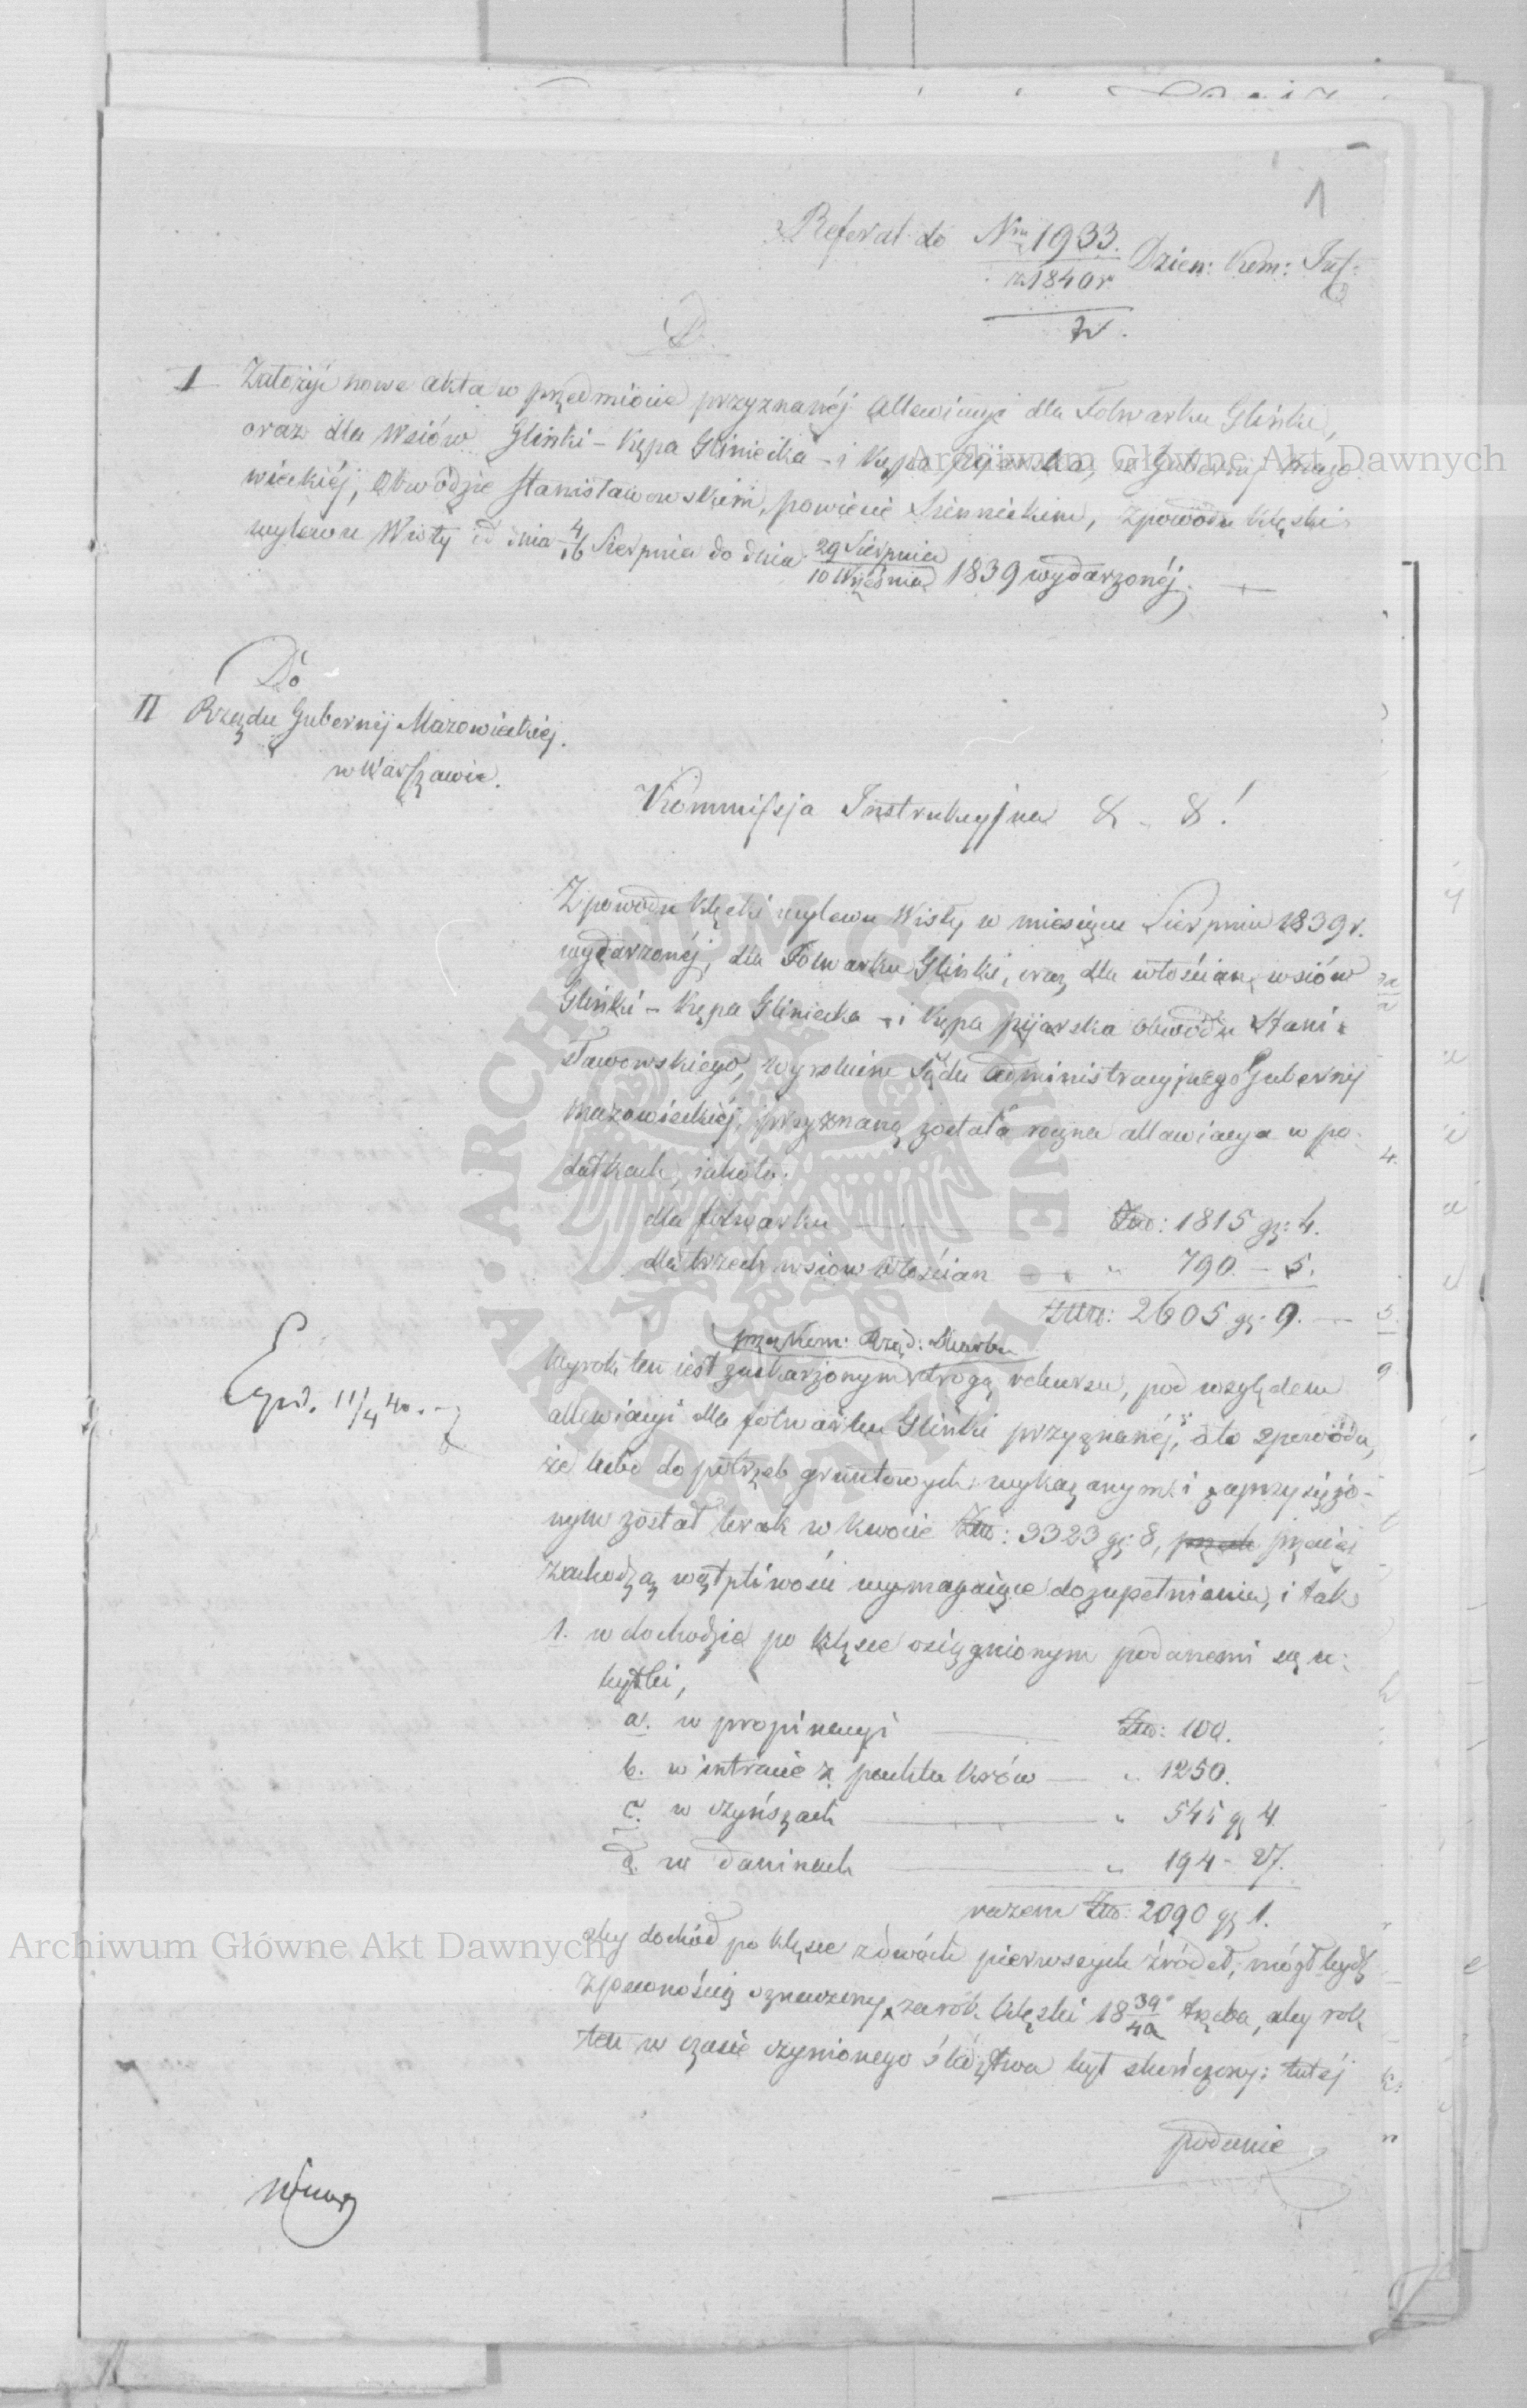 1
Referat do Nru 1933. Dzien: Kom: Inst:
z 1840 r
D.
I Założyć nowe akta w przedmiocie przyznanéj allewiacyi dla Folwarku Glinki,
oraz dla Wsiów Glinki – Kępa Gliniecka – i Kępa pijarska, w Gubernij Mazo-
wieckiéj, Obwodzie Stanisławowskim, powiecie Siennickim, z powodu klęski
wylewu Wisły od dnia 4/16 Sierpnia do dnia 29 Sierpnia/10 Września 1839 wydarzonéj. —
Do
II Rządu Gubernij Mazowieckiej.
w Warszawie.
Kommissja Instrukcyjna & &!
Z powodu klęski wylewu Wisły w miesiącu Sierpniu 1839 r.
wydarzonéj, dla Folwarku Glinki, oraz dla włościan wsiów
Glinki – Kępa Gliniecka – i Kępa pijarska Obwodu Stani-
sławowskiego, wyrokiem Sądu Administracyjnego Gubernij
Mazowieckiéj, przyznaną została roczna allewiacya w po-
datkach, jakoto.
dla folwarku — Złło: 1815 gr: 4.
dla trzech wsiów włościan — " 790 – 5.
Złło: 2605 gr: 9. —
przez Kom: Rząd: Skarbu
Wyrok ten iest zaskarżonym drogą rekursu, pod względem
allewiacyi dla folwarku Glinki przyznanéj, a to z powodu,
że lubo do potrzeb gruntowych wykazanym i zaprzysiężo-
nym został brak w kwocie Złło: 3323 gr: 8, przecież
zachodzą wątpliwości wymagaiące dozupełnienia, i tak
1. w dochodzie po klęsce osiągnionym podanemi są u-
bytki,
a. w propinacyi — Złło: 100.
b. w intracie z pachtu krów — " 1250.
c. w czynszach — " 545 gr 4.
d. w daninach — " 194 – 27.
razem Złło: 2090 gr 1.
aby dochód po klęsce z dwóch pierwszych źródeł, mógł bydź
z pewnością oznaczony, za rok klęski 18 39/40 trzeba, aby rok
ten w czasie czynionego śledztwa był skończony: tutéj
podanie
Exp. 11/4 40.